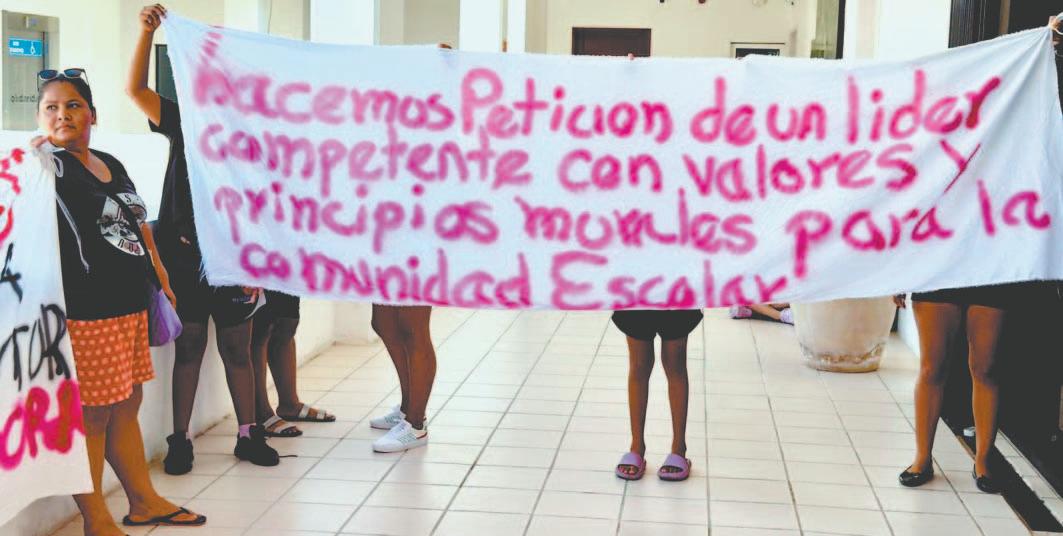 hacemos Peticion de un lider
competente con valores y
principios murales para la
comunidad Escolar
TOR
ORA